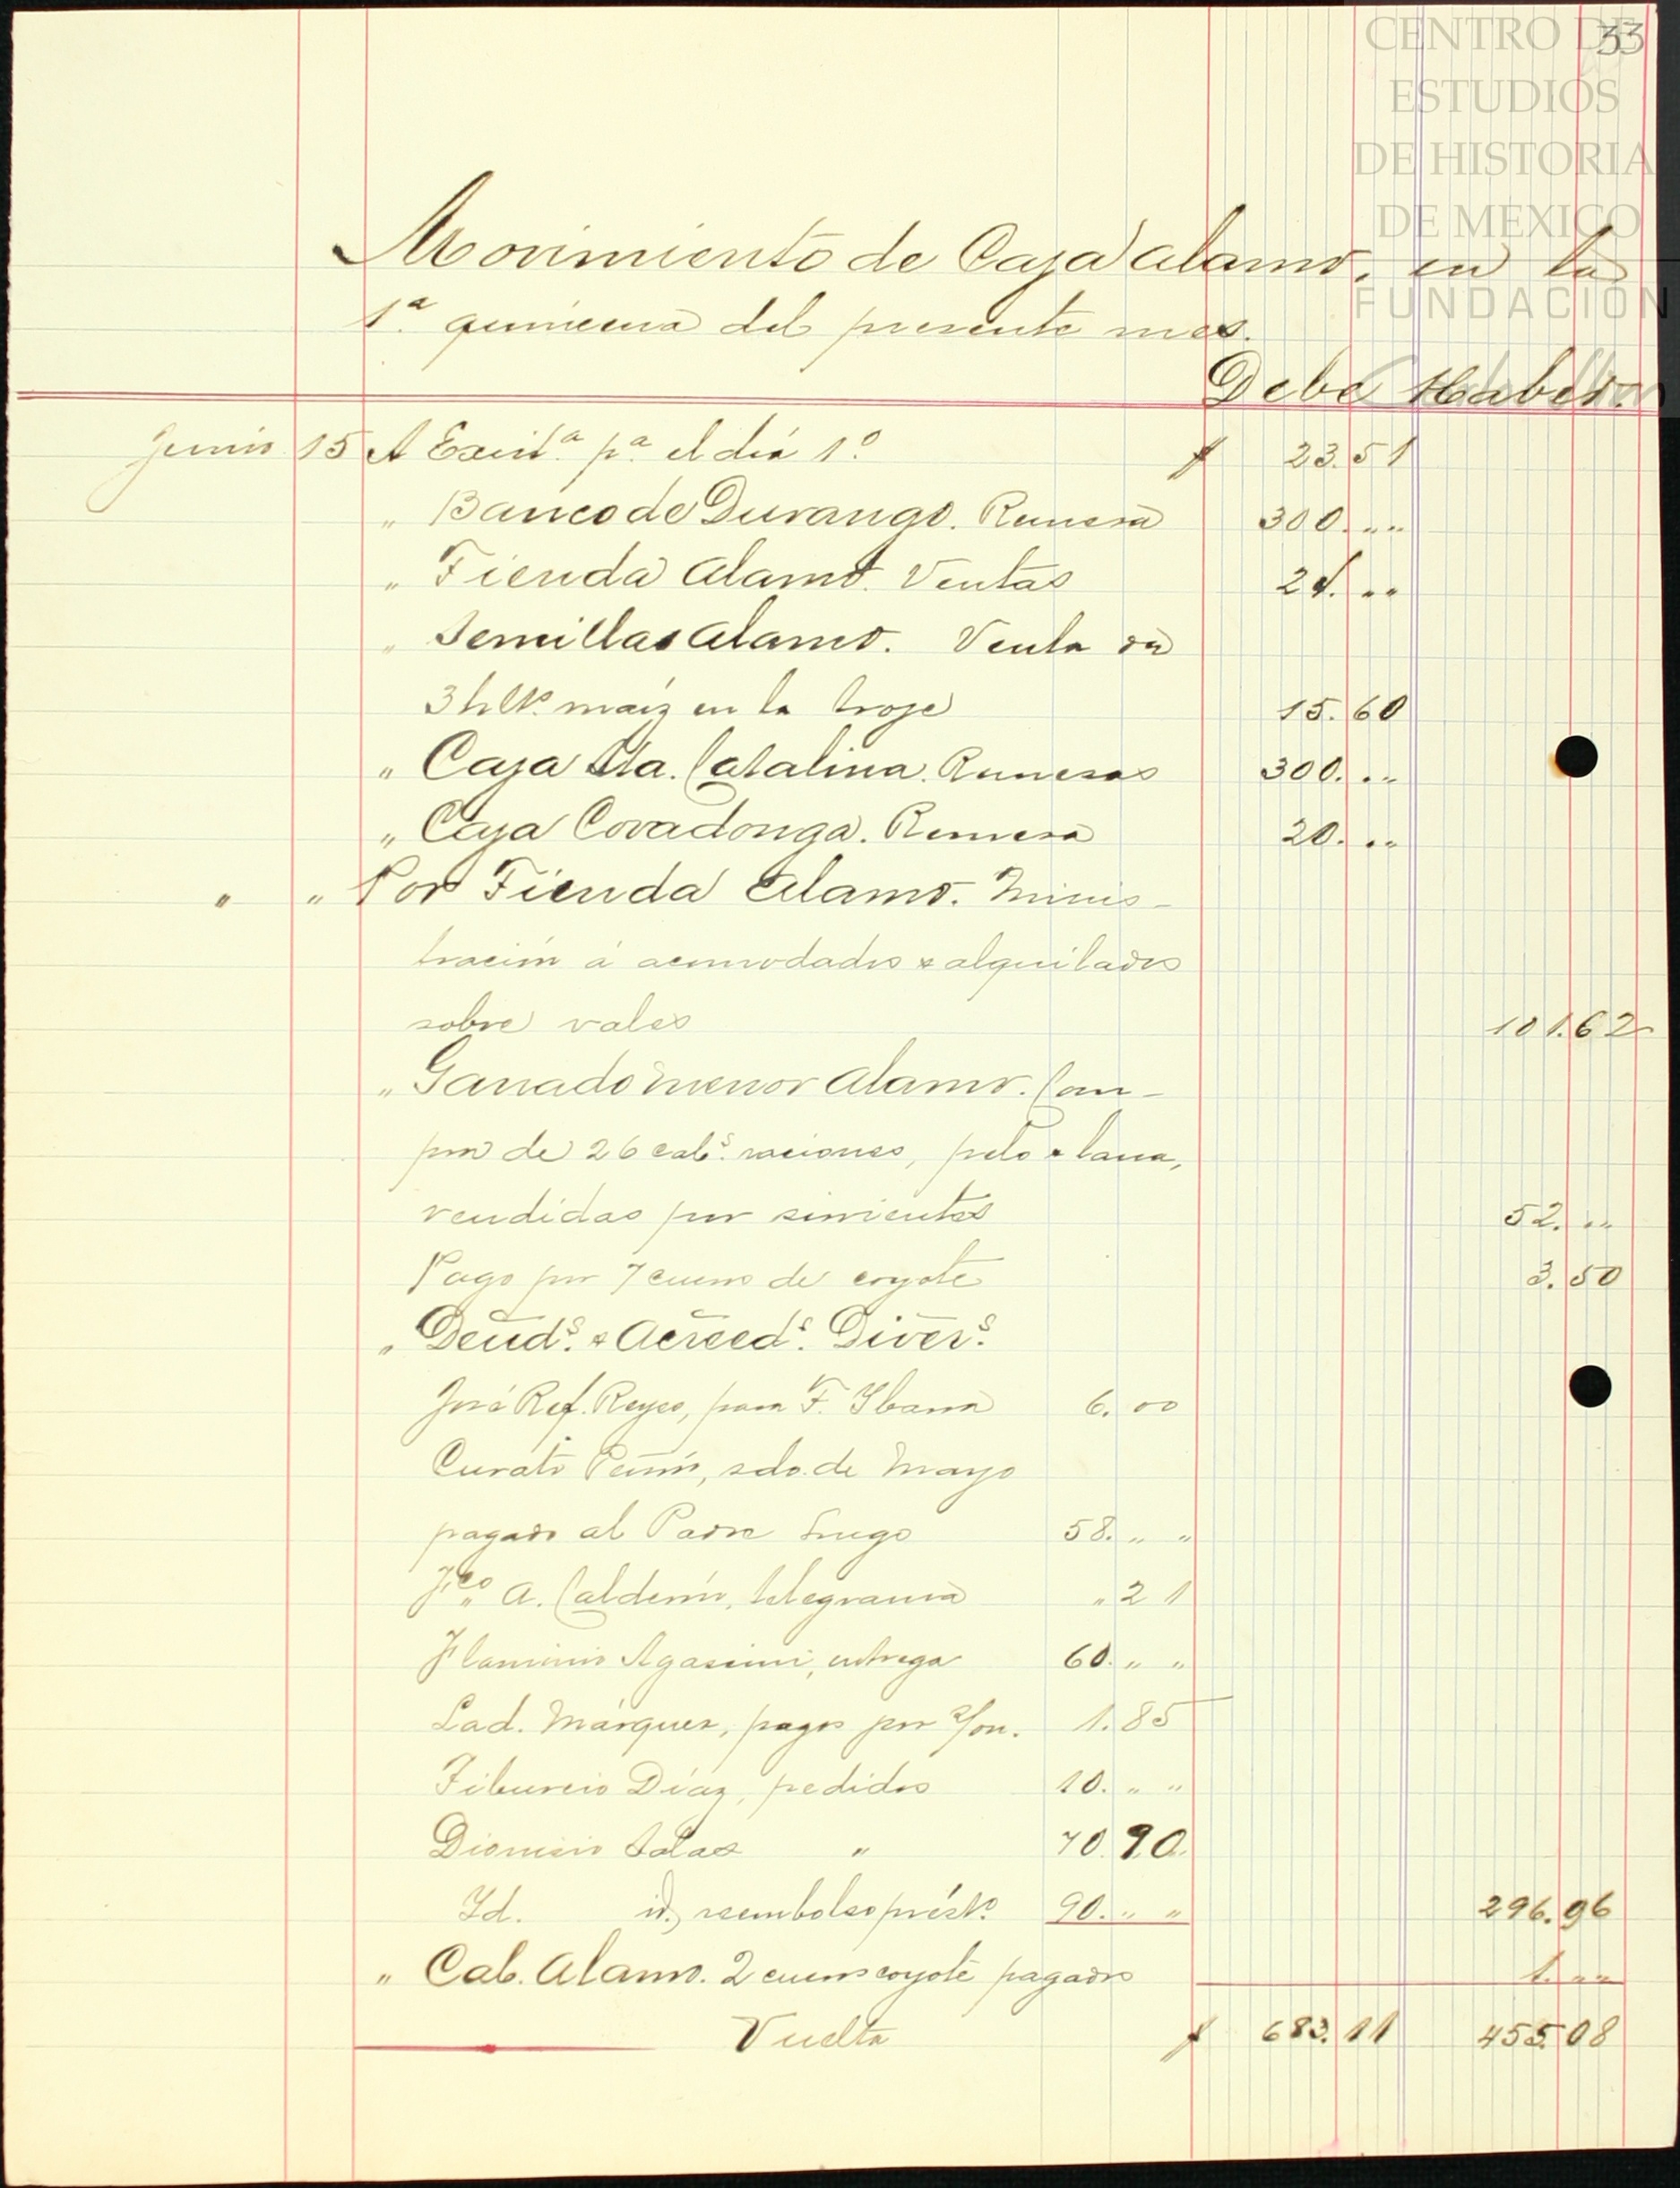 CENTRO DE
33
ESTUDIOS
DE HISTORIA
DE MEXICO
FUNDACIÓN
Movimiento de Caja Alamo, en la
1ª quincena del presente mes.
Debe Haber.
Junio 15 A Exist.ª p.ª el día 1º $ 23.51
" Banco de Durango. Remesa 300. ""
" Tienda Alamo. Ventas 24. ""
" Semillas Alamo. Venta de
3 hlts. maíz en la troje 15.60
" Caja Sta. Catalina. Remesas 300. ""
" Caja Covadonga. Remesa 20. ""
" " Por Tienda Alamo. Minis-
tración á acomodados & alquilados
sobre vales 101.62
" Ganado menor Alamo. Com-
pra de 26 cabs. raciones, pelo & lana,
vendidas por sirvientes 52. ""
Pago por 7 cueros de coyote 3.50
" Deuds. & Acreeds. Divers.
José Ref. Reyes, para F. Ibarra 6.00
Curato Peñón, sdo. de Mayo
pagado al Padre Lugo 58. " "
Fco. A. Calderón, telegrama " 21
Flaminio Agasini, entrega 60. " "
Lad. Márquez, pagos por s/on. 1.85
Tiburcio Díaz, pedidos 10. " "
Dionisio Salas " 70.90
Id. id, reembolso prést.º 90. " " 296.96
" Cab. Alamo. 2 cueros coyote pagados 1. ""
Vuelta $ 683.11 455.08